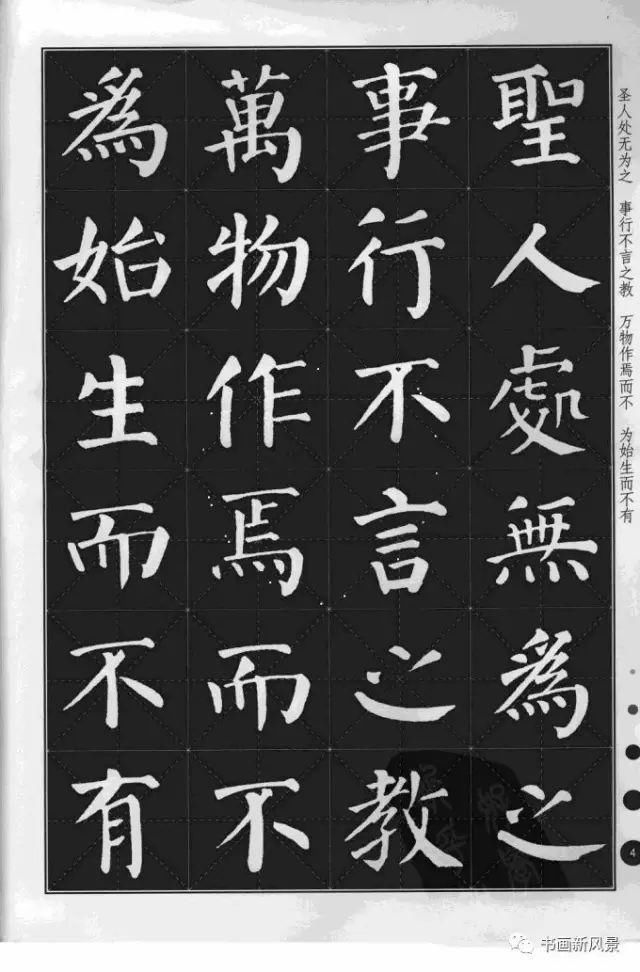 聖人處無為之
事行不言之教
萬物作焉而不
為始生而不有
圣人处无为之 事行不言之教 万物作焉而不 为始生而不有
4
书画新风景